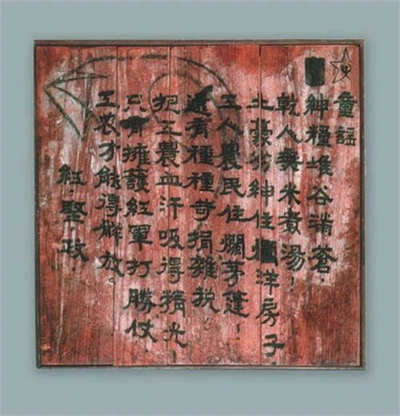 童謡
紳糧堆谷满蒼，
乾人無米煮湯！
土豪劣紳住洋房子，
工人農民住爛茅蓬！
還有種種苛捐雜税，
把工農血汗吸得精光！
只有擁護紅軍打勝仗，
工农才能得解放。
紅堅政